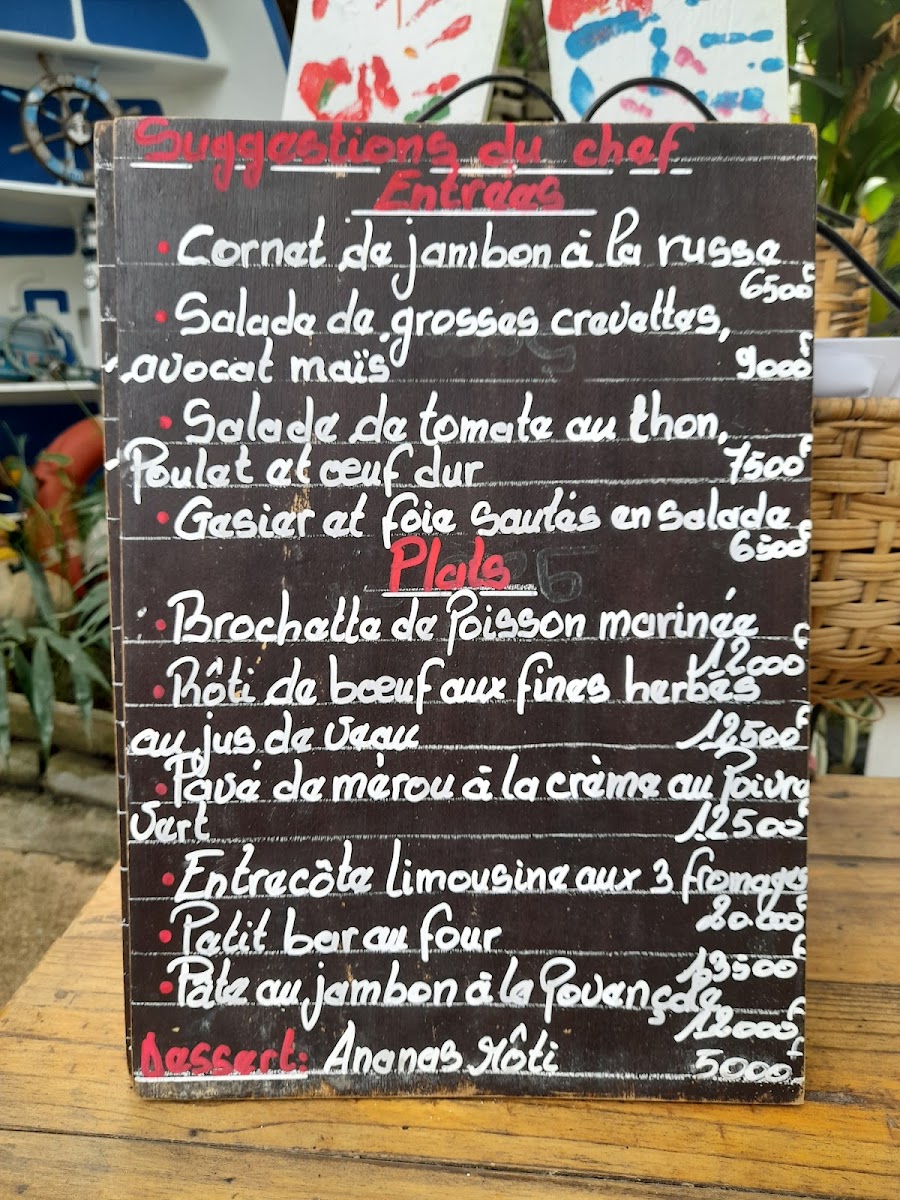 Suggestions du chef
Entrées
• Cornet de jambon à la russe
6500F
• Salade de grosses crevettes,
avocat maïs 9000F
• Salade de tomate au thon,
Poulet et œuf dur 7500F
• Gesier et foie sautés en salade
6500F
Plats
• Brochette de Poisson marinée
12000F
• Rôti de bœuf aux fines herbes
au jus de veau 12500F
• Pavé de mèrou à la crème au Poivre
Vert 12500F
• Entrecôte limousine aux 3 fromages
20.000F
• Petit bar au four
13500F
• Pâte au jambon à la Provençale
12000F
Dessert: Ananas Rôti 5000F